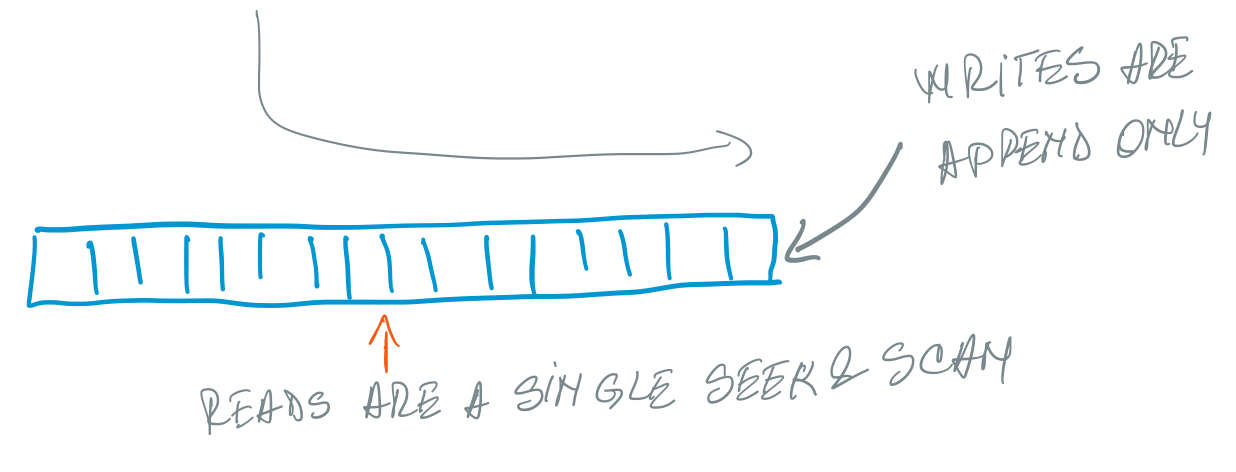 WRITES ARE
APPEND ONLY
READS ARE A SINGLE SEEK & SCAN